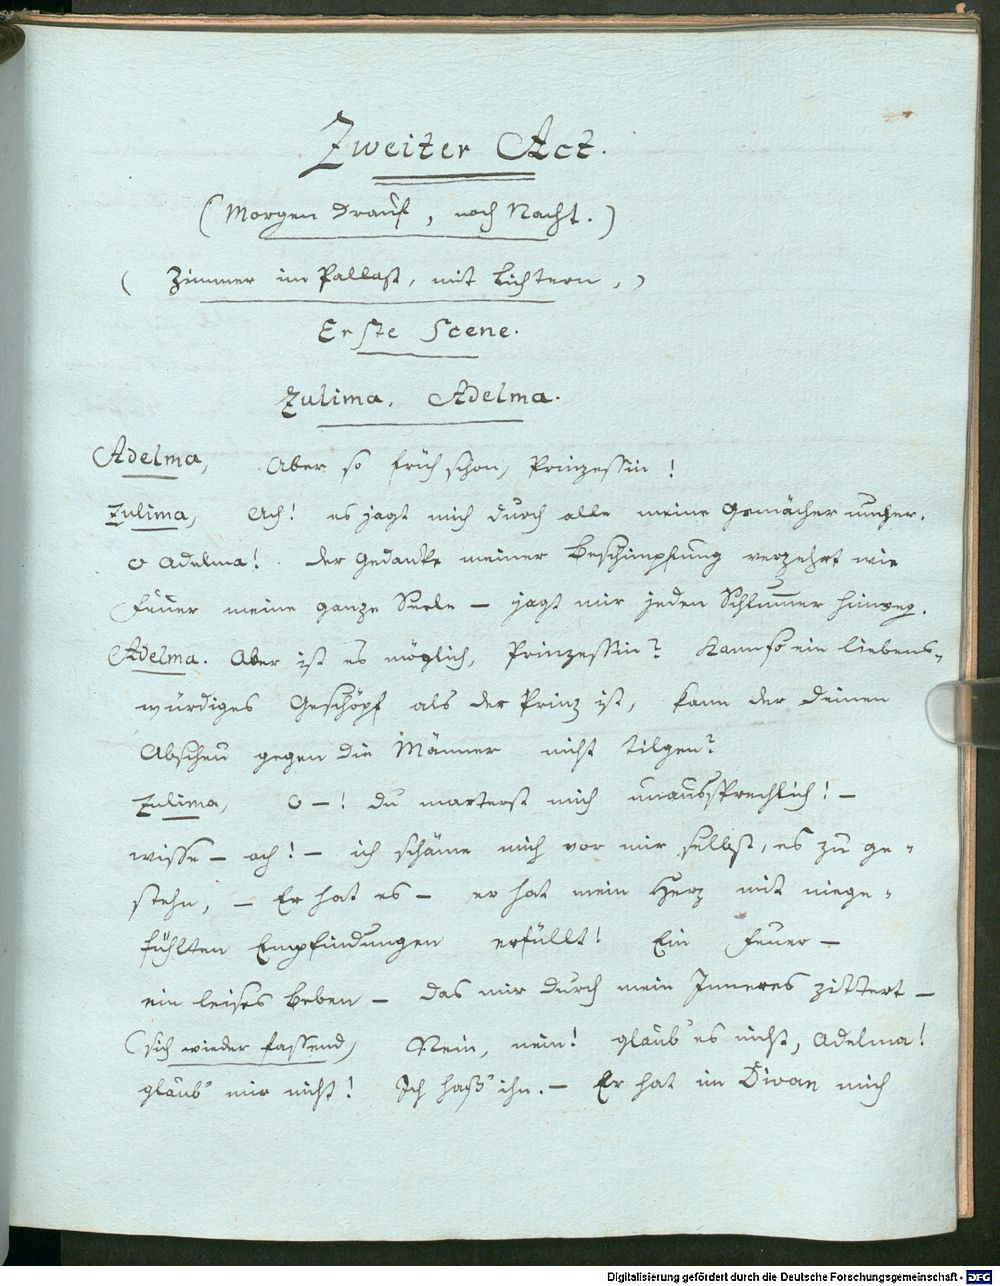 Zweiter Act.
(Morgen drauf, noch Nacht.)
(Zimmer im Pallast, mit Lichtern,)
Erste Scene.
Zulima. Adelma.
Adelma, Aber so früh schon, Prinzessin!
Zulima, Ach! es jagt mich durch alle meine Gemächer umher.
O Adelma! Der Gedanke meiner Beschimpfung verzehrt wie
Feuer meine ganze Seele – jagt mir jeden Schlummer hinweg.
Adelma. Aber ist es möglich, Prinzessin? Kann so ein liebens-
würdiges Geschöpf als der Prinz ist, kann der deinen
Abscheu gegen die Männer nicht tilgen?
Zulima, O –! du marterst mich unaussprechlich! –
wisse – ach! – ich schäme mich vor mir selbst, es zu ge-
stehn, – Er hat es – er hat mein Herz mit niege-
fühlten Empfindungen erfüllt! Ein Feuer –
ein leises Beben – das mir durch mein Inneres zittert –
(sich wieder fassend) Nein, nein! glaub' es nicht, Adelma!
glaub' mir nicht! Ich haß' ihn. – Er hat im Divan mich
Digitalisierung gefördert durch die Deutsche Forschungsgemeinschaft - DFG